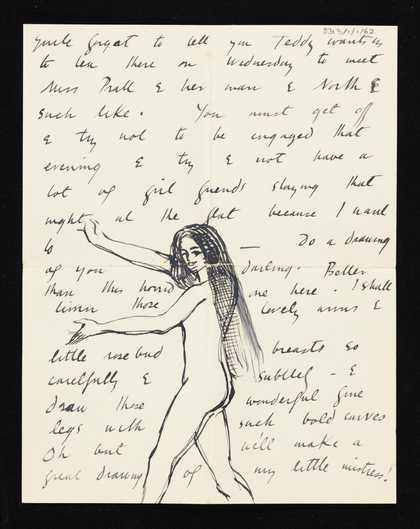 You've forgot to tell you Teddy wants us
to tea there on Wednesday to meet
Miss Pratt & her man & North &
such like. You must get off
& try not to be engaged that
evening & try & not have a
lot of girl friends staying that
night at the flat because I want
to — Do a drawing
of you darling. Better
than this horrid one here. I shall
limn those lovely arms &
little rosebud breasts so
carefully & subtley – &
Draw those wonderful fine
legs with such bold curves
Oh but we'll make a
great drawing of my little mistress!